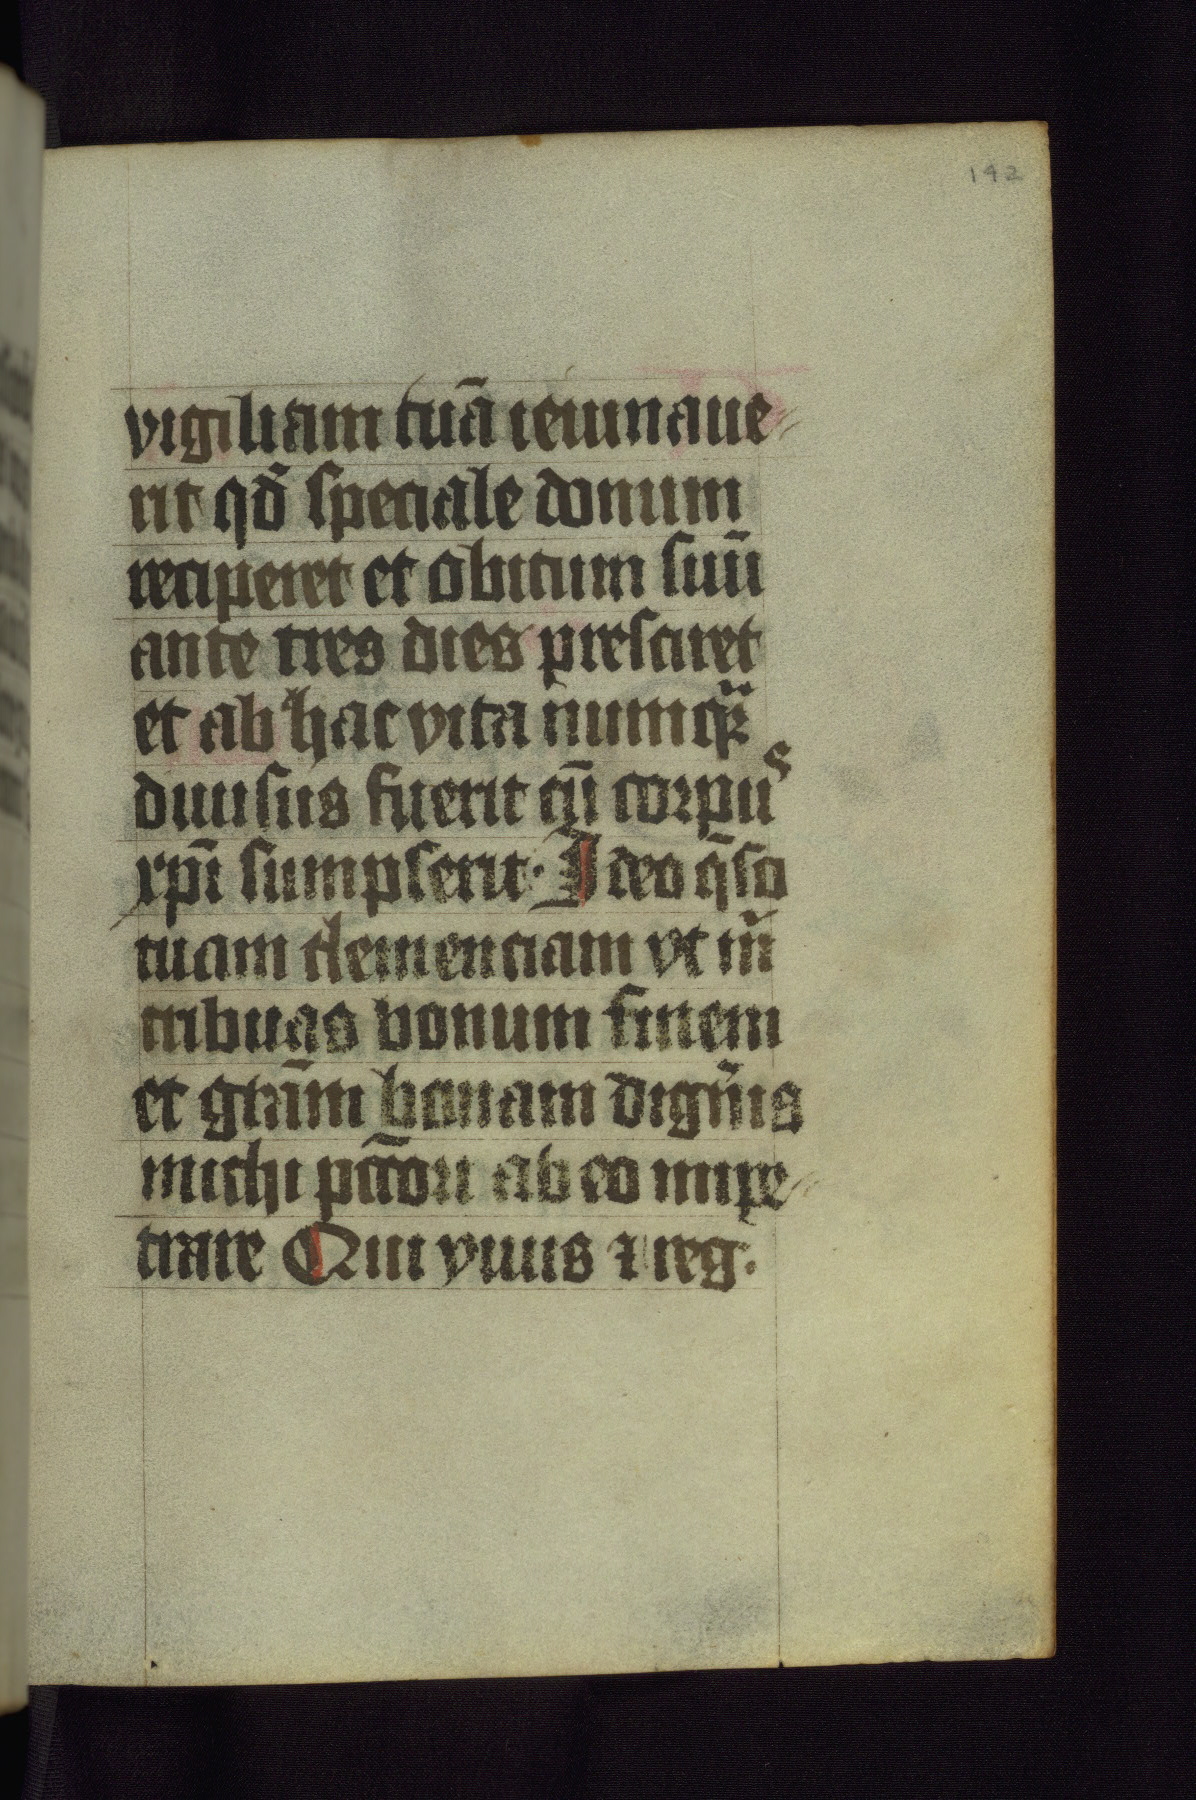 142
vigiliam tuā ieiunaue⸗
rit qd̄ speciale donum
reciperet et obitum suū
ante tres dies presciret
et ab hac vita numq̄ꝫ
diuisus fuerit cū corpus
xp̄i sumpserit· Ideo q̄so
tuam clemenciam vt m̄
tribuas bonum finem
et grām bonam dign̄is
michi pcc̄ori ab eo impe⸗
trare Qui viuis ⁊ reg·